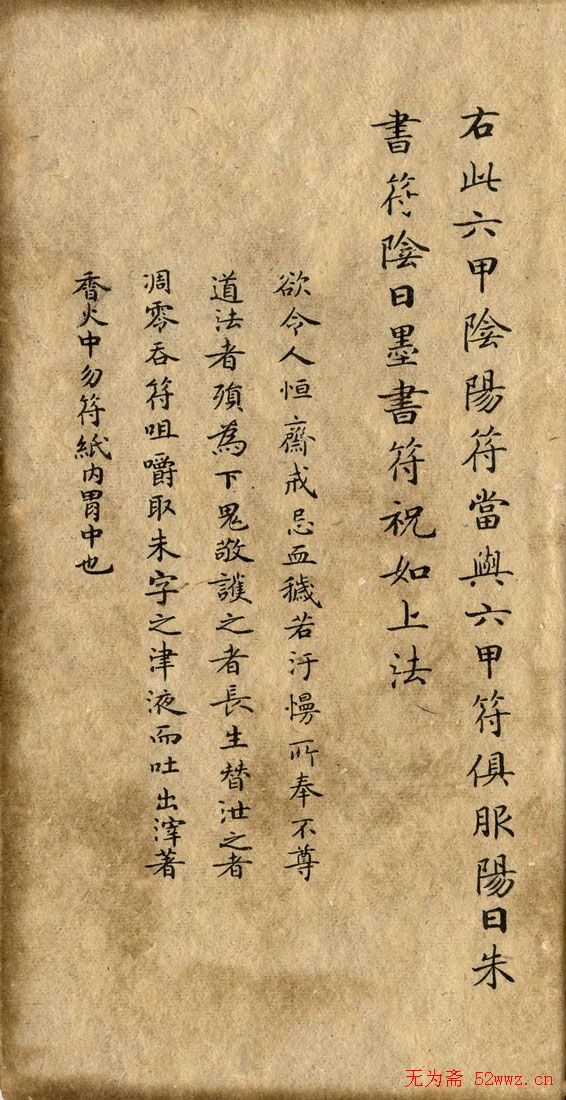 右此六甲陰陽符當與六甲符俱服陽日朱
書符陰日墨書符祝如上法
欲令人恒齋戒忌血穢若汙慢所奉不尊
道法者殞為下鬼敬護之者長生替泄之者
凋零吞符咀嚼取朱字之津液而吐出滓著
香火中勿符紙内胃中也
无为斋 52wwz.cn